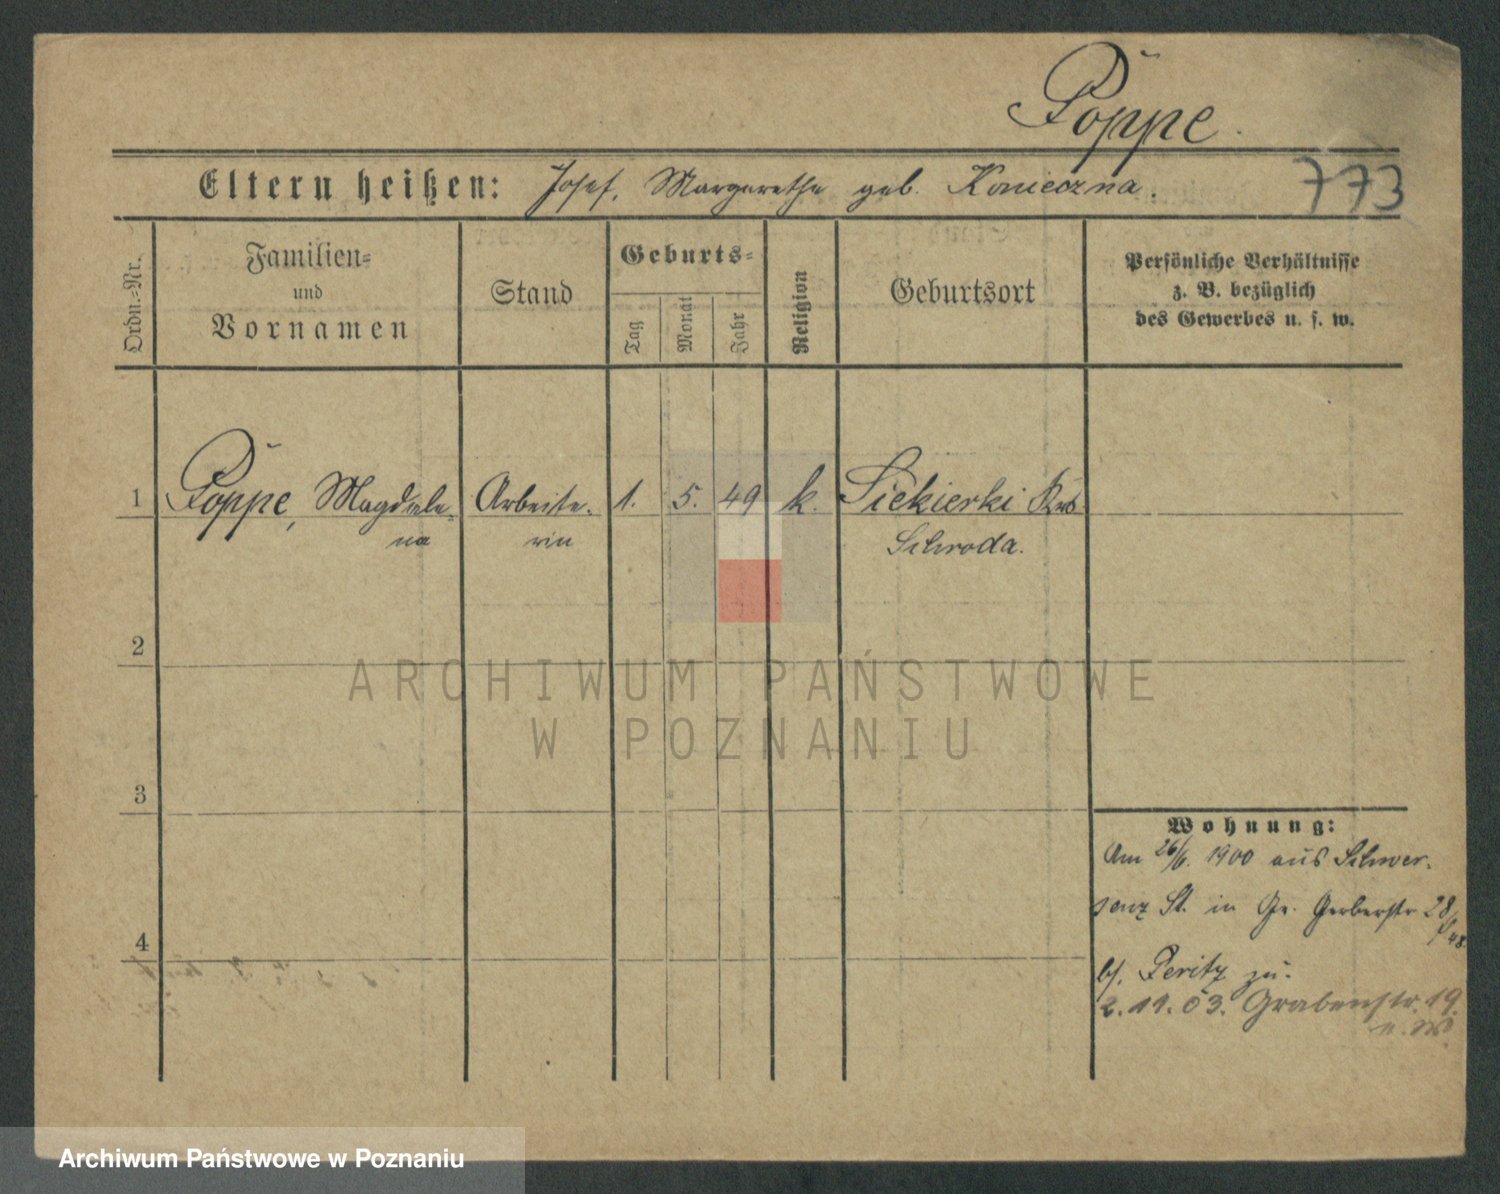 Poppe.
Eltern heißen: Josef, Margarethe geb. Konieczna.
773
Ordn.=Nr.
Familien=
und
Vornamen
Stand
Geburts=
Tag
Monat
Jahr
Religion
Geburtsort
Persönliche Verhältnisse
z. B. bezüglich
des Gewerbes u. s. w.
1 Poppe, Magdale- Arbeite- 1. 5. 49 k. Siekierki Krs
na rin Schroda.
2
3
4
Wohnung:
Am 26/6. 1900 aus Schwer-
senz St. in Gr. Gerberstr 28
b/. Peritz zu.
2.11.03. Grabenstr. 19.
ARCHIWUM PAŃSTWOWE
W POZNANIU
Archiwum Państwowe w Poznaniu